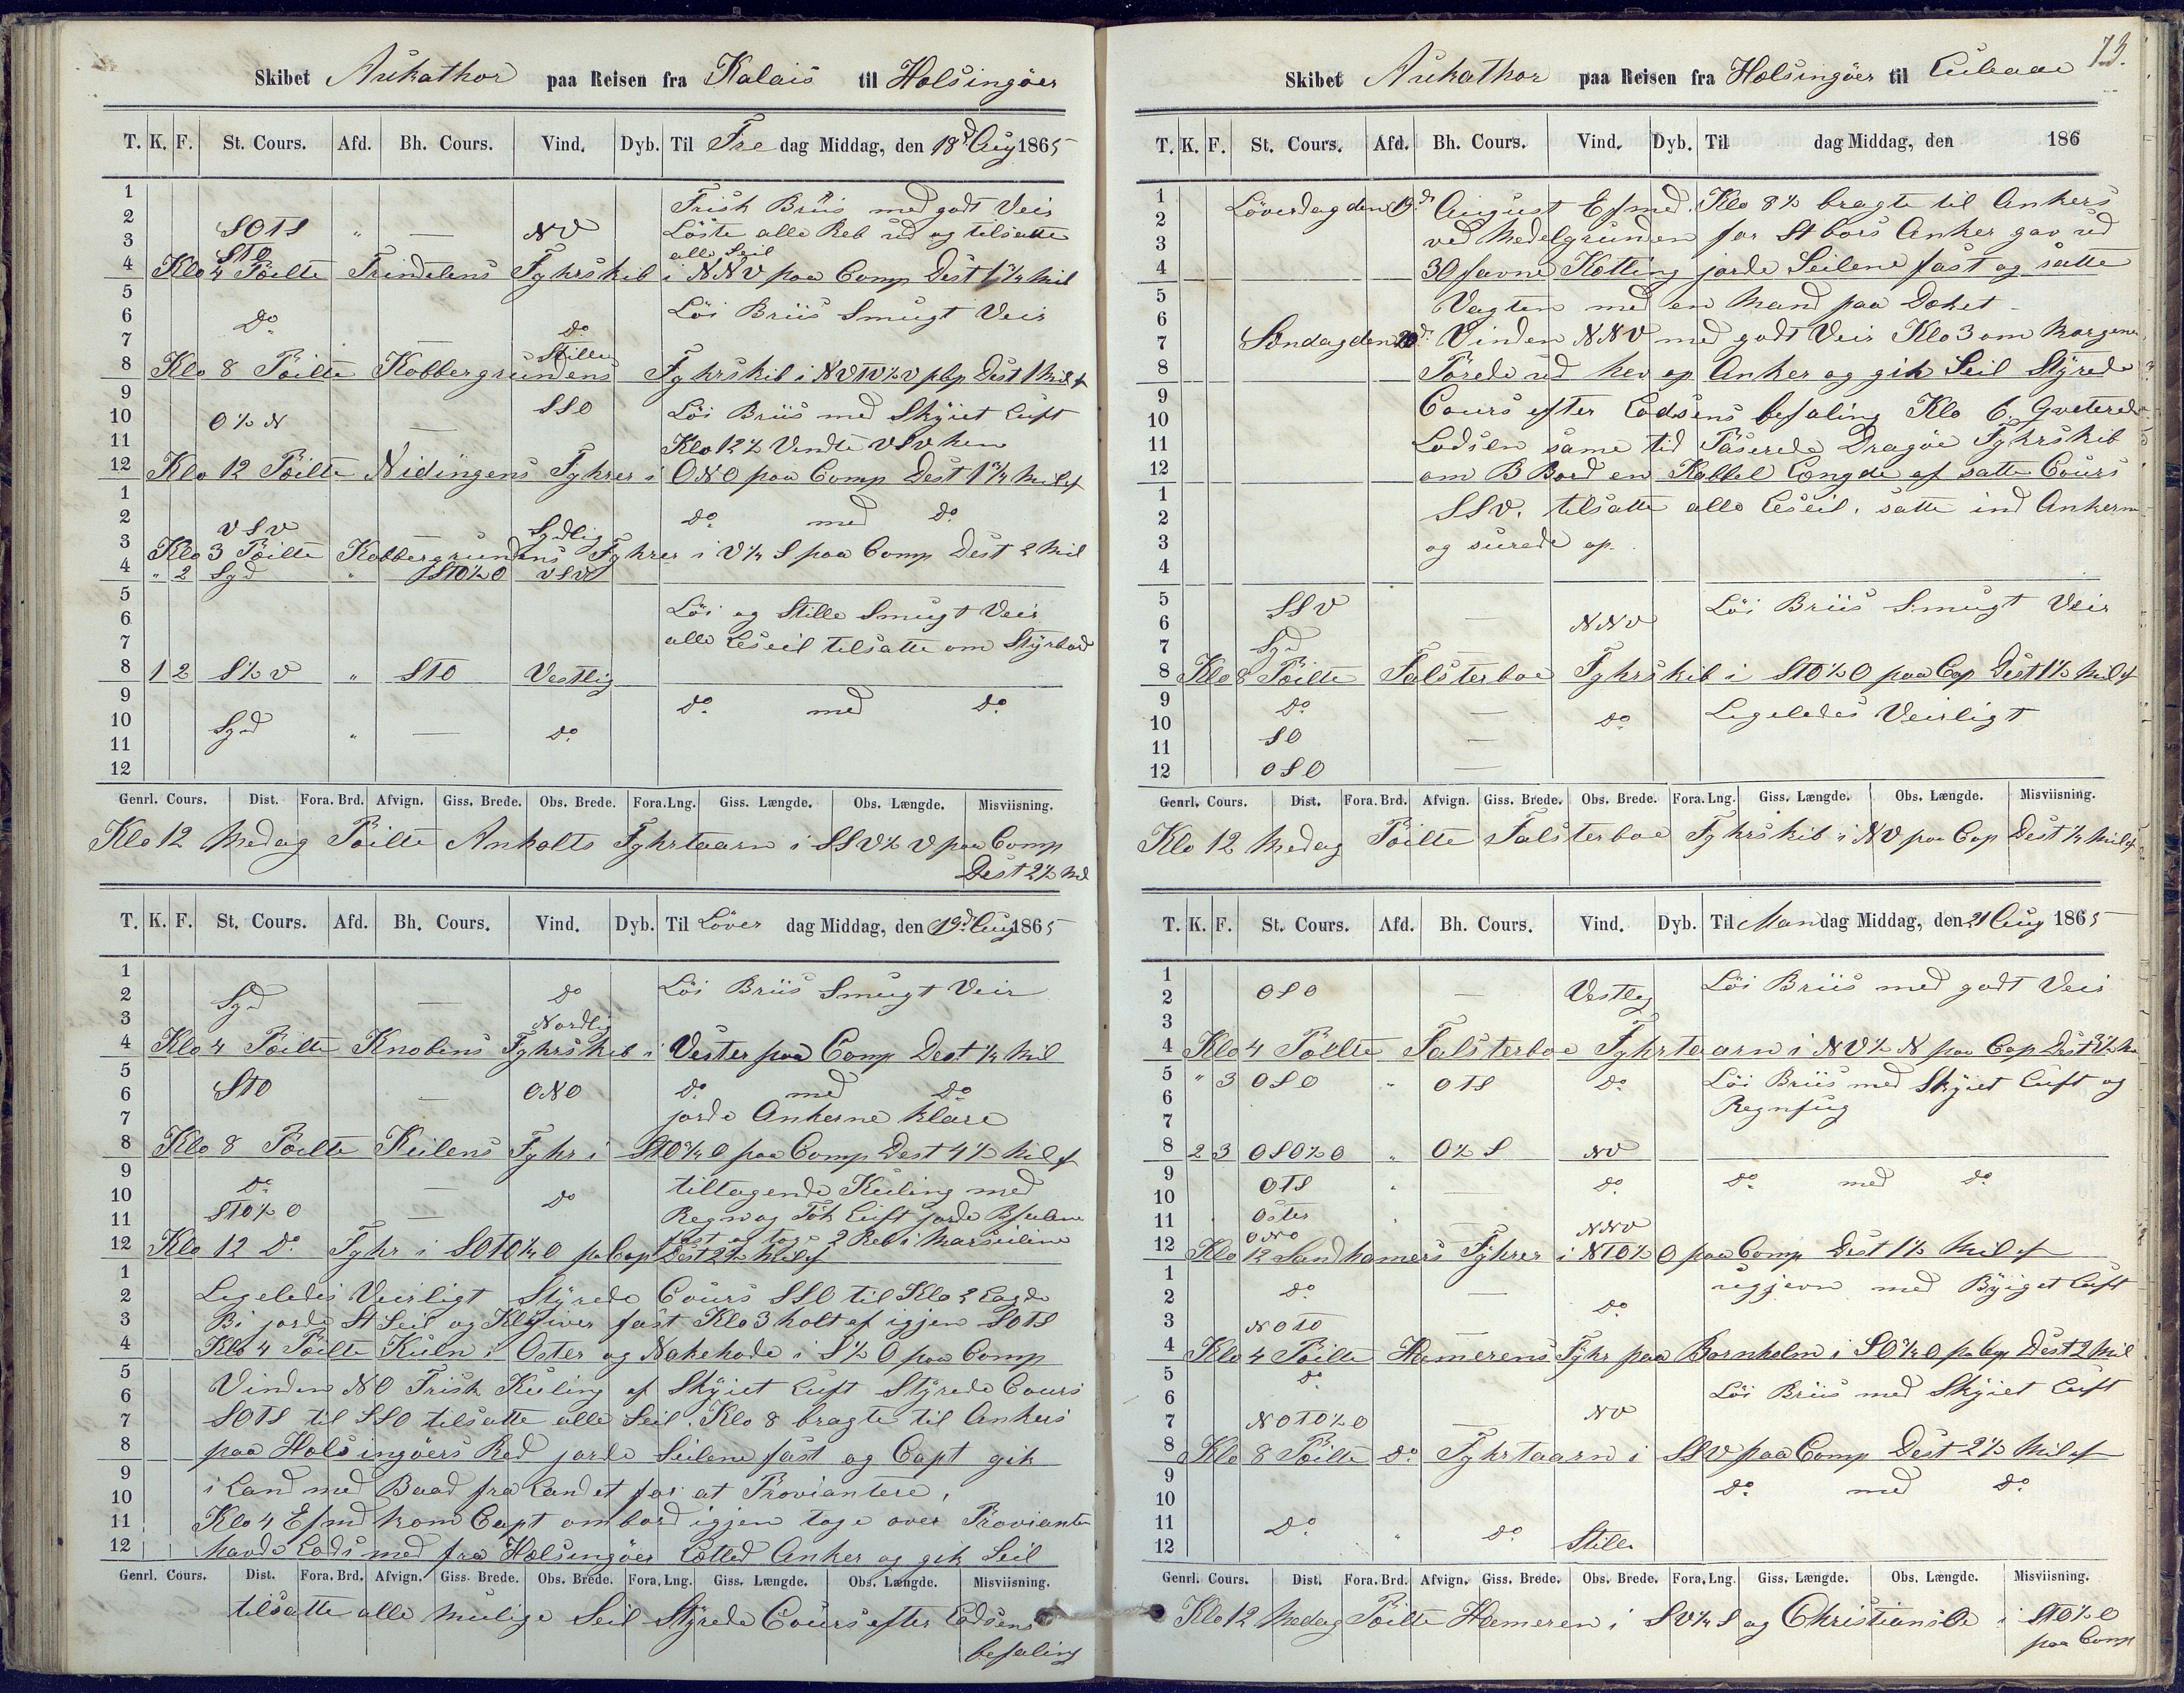 Skibet Aukathor paa Reisen fra Kalais til Helsingöer
T. K. F. St. Cours. Afd. Bh. Cours. Vind. Dyb. Til Fre dag Middag, den 18d Aug 1865
1 Frisk Briis med godt Veir
2 SOTS " — NV Löste alle Reb ud og tilsatte
3 STO alle Seil
4 Klo 4 Peilte Trindelens Fyhrskib i NNV paa Comp Dest 1¾ Mil
5 Löi Briis Smugt Veir
6 Do
7 — Do Stille
8 Klo 8 Peilte Kobbergrundens Fyhrskib i NVTV½V pCp Dest 1 Mil af
9 SSO Löi Briis med Skÿiet Luft
10 O½N —
11 Klo 12½ Vendte VSV hen
12 Klo 12 Peilte Nidingens Fyhrer i ONO paa Comp Dest 1¾ Mil af
1
2 VSV Sydlig Do med Do
3 Klo 3 Peilte Kobbergrundens Fyhrer i V¼S paa Comp Dest 2 Mil
4 " 2 Syd " STO½O VSV
5
6 Löi og Stille Smugt Veir
7 alle Leseil tilsatte om Stÿrbord
8 1 2 S½V " STO Vestlig
9
10 Syd " — Do Do med Do
11
12
Genrl. Cours. Dist. Fora. Brd. Afvign. Giss. Brede. Obs. Brede. Fora. Lng. Giss. Længde. Obs. Længde. Misviisning.
Klo 12 Medag Peilte Anholts Fyhrtaarn i SSV½V paa Comp
Dest 2½ Mil
T. K. F. St. Cours. Afd. Bh. Cours. Vind. Dyb. Til Löver dag Middag, den 19d Aug 1865
1
2 Syd — Do Löi Briis Smugt Veir
3 Nordlig
4 Klo 4 Peilte Knobens Fyhrskib i Vester paa Comp Dest ¼ Mil
5
6 STO — ONO Do med Do
7 jorde Ankerne klare
8 Klo 8 Peilte Keilens Fyhr i STO¾O paa Comp Dest 4½ Mil af
9 Do — Do tiltagende Kuling med
10 STO½O
11 — Regn og Tÿk Luft jorde
12 fast og toge 2 Reb i Marseilene
Klo 12 Do Fyhr i SOTO¼O pa Cop Dest 2½ Mil af
1 Legeledes Veirligt Stÿrede Cours SSO til Klo 2 Lagde
2 Bi jorde St Seil og Klÿiver fast Klo 3 holt af igjen SOTS
3 Klo 4 Peilte Kuln i Oster og Nakehode i S½O paa Comp
4 Vinden NO Frisk Kuling af Skÿiet Luft Stÿrede Cours
5 SOTS til SSO tilsatte alle Seil. Klo 8 bragte til Ankers
6 paa Helsingöers Red jorde Seilene fast og Capt gik
7 i Land med Baad fra Landet for at Proviantere,
8 Klo 4 Efmd kom Capt ombord igjen toge over Provianten
9 havde Lods med fra Helsingöer Letted Anker og gik Seil
10
11
12
Genrl. Cours. Dist. Fora. Brd. Afvign. Giss. Brede. Obs. Brede. Fora. Lng. Giss. Længde. Obs. Længde. Misviisning.
tilsatte alle mulige Seil Stÿrede Cours efter Lodsens
befaling
73.
Skibet Aukathor paa Reisen fra Helsingöer til
T. K. F. St. Cours. Afd. Bh. Cours. Vind. Dyb. Til dag Middag, den 186
1 Löverdag den 19d August Efmed. Klo 8½ bragte til Ankers
2 ved Medelgrunden for St bors Anker gav ud
3 30 favne Ketting jorde Seilene fast og satte
4 Vagten med en Mand paa Deket
5 Söndag den 20d Vinden NNV med godt Veir Klo 3 om Morgenen
6 Törede ud hev op Anker og gik Seil Stÿrede
7 Cours efter Lodsens befaling Klo 6 Qviterede
8 Lodsen same tid Paserede Dragöe Fyhrskib
9 om B Bord en Kabbel Længde af satte Cours
10 SSV. tilsatte alle Leseil. satte ind Ankerne
11 og surede op.
12
1
2
3
4
5 SSV Löi Briis Smugt Veir
6 — NNV
7 Syd —
8 Klo 8 Peilte Falsterboe Fyhrskib i STO½O paa Cop Dest 1½ Mil af
9 Do — Do Legeledes Veirligt
10
11 SO —
12 OSO —
Genrl. Cours. Dist. Fora. Brd. Afvign. Giss. Brede. Obs. Brede. Fora. Lng. Giss. Længde. Obs. Længde. Misviisning.
Klo 12 Medag Peilte Falsterboe Fyhrskib i NV paa Cop Dest ¼ Mil af
T. K. F. St. Cours. Afd. Bh. Cours. Vind. Dyb. Til Man dag Middag, den 21 Aug 1865
1
2 OSO — Vestlig Löi Briis med godt Veir
3
4 Klo 4 Peilte Falsterboe Fyhrtaarn i NV½N paa Cop Dest
5 " 3 OSO " OTS Do Löi Briis med Skÿiet Luft og
6 Regnfug
7
8 2 3 OSO½O " O½S NV
9 OTS " — Do Do med Do
10
11 Oster —
12 ONO NNV
Klo 12 Sandhamers Fÿhrer i NTO½O paa Comp Dest 1½ Mil af
1 Do — ugjevn med Bÿiget Luft
2 Do
3 NOTO —
4 Klo 4 Peilte Hamerens Fÿhr paa Bornholm i SO¾O pa Cop Dest 2 Mil
5 Do Löi Briis med Skÿiet Luft
6
7 NOTO½O — NV
8 Klo 8 Peilte Do Fyhrtaarn i SSV paa Comp Dest 2½ Mil af
9
10 Do med Do
11 Do " Do
12 Stille
Genrl. Cours. Dist. Fora. Brd. Afvign. Giss. Brede. Obs. Brede. Fora. Lng. Giss. Længde. Obs. Længde. Misviisning.
Klo 12 Medag Peilte Hameren i SV¼S og ChristiansÖe i STO½O
paa Comp